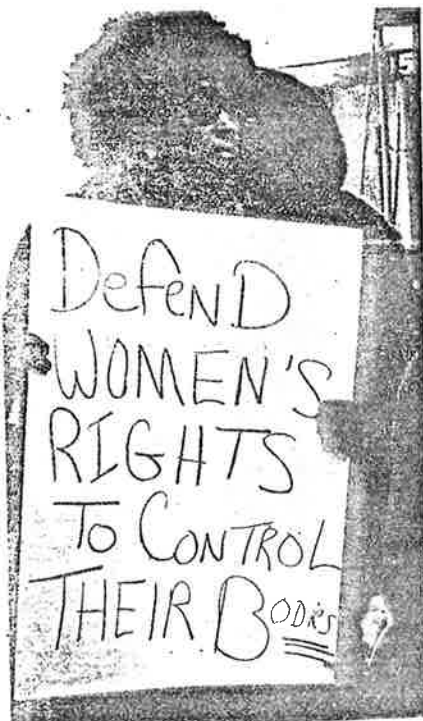 DefenD
WOMEN'S
RIGHTS
To CONTROL
THEIR BODRS